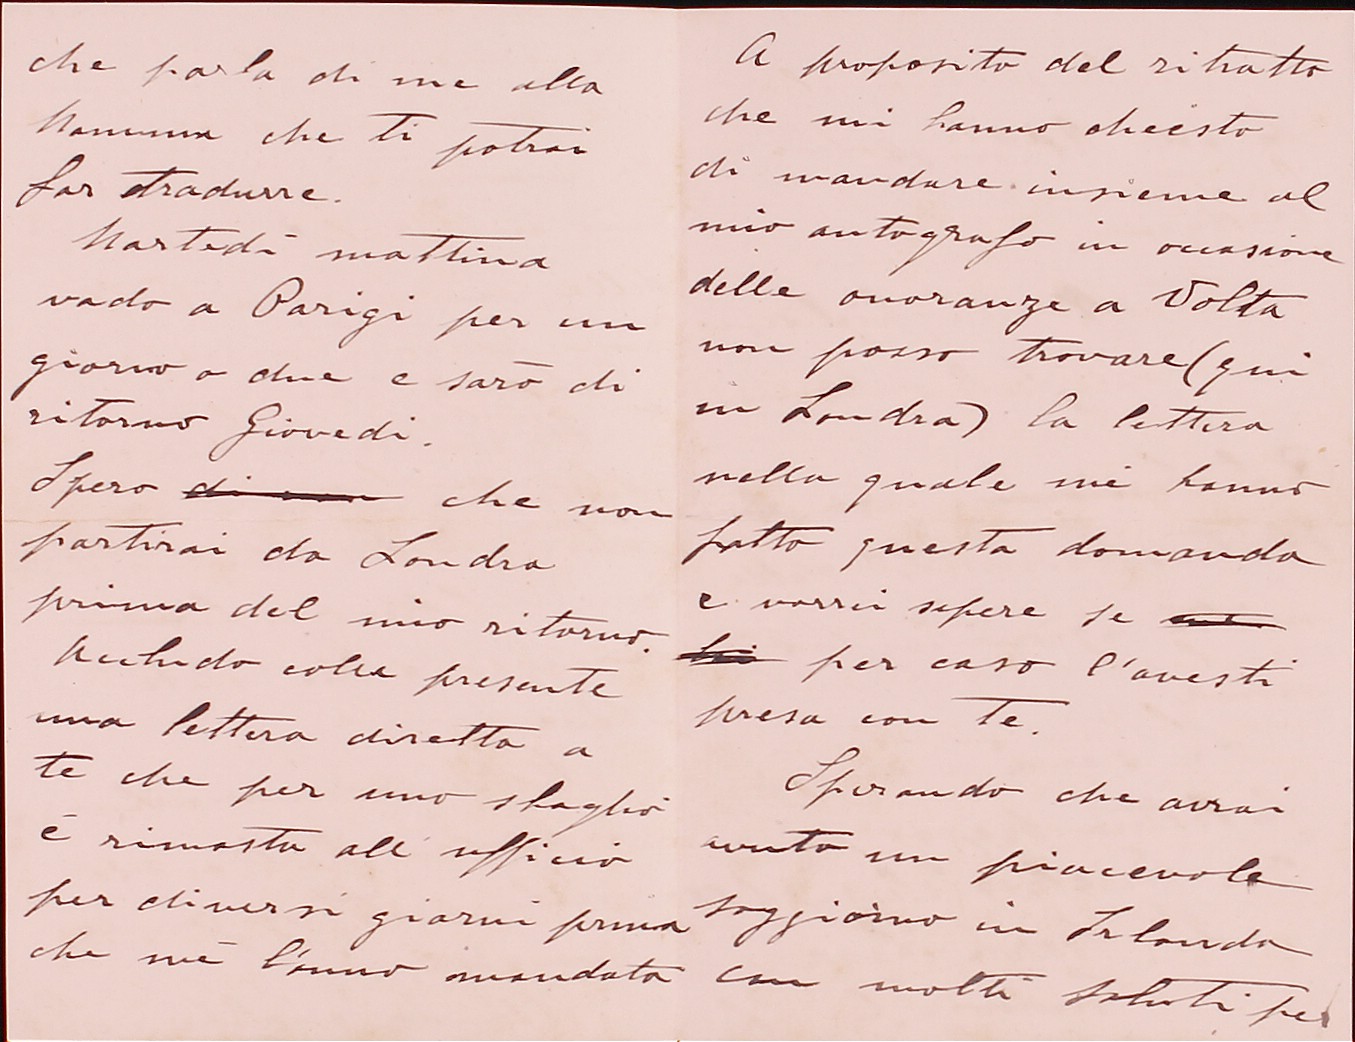 che parla di me alla
Mamma che ti potrai
far tradurre.
Martedì mattina
vado a Parigi per un
giorno o due e sarò di
ritorno Giovedì.
Spero di non che non
partirai da Londra
prima del mio ritorno.
Accludo colla presente
una lettera diretta a
te che per uno sbaglio
è rimasta all' ufficio
per diversi giorni prima
che me l'anno mandata
A proposito del ritratto
che mi hanno chiesto
di mandare insieme al
mio autografo in occasione
delle onoranze a Volta
non posso trovare (qui
in Londra) la lettera
nella quale mi hanno
fatto questa domanda
e vorrei sapere se
per caso l'avesti
presa con te.
Sperando che avrai
avuto un piacevole
soggiorno in Irlanda
con molti saluti per